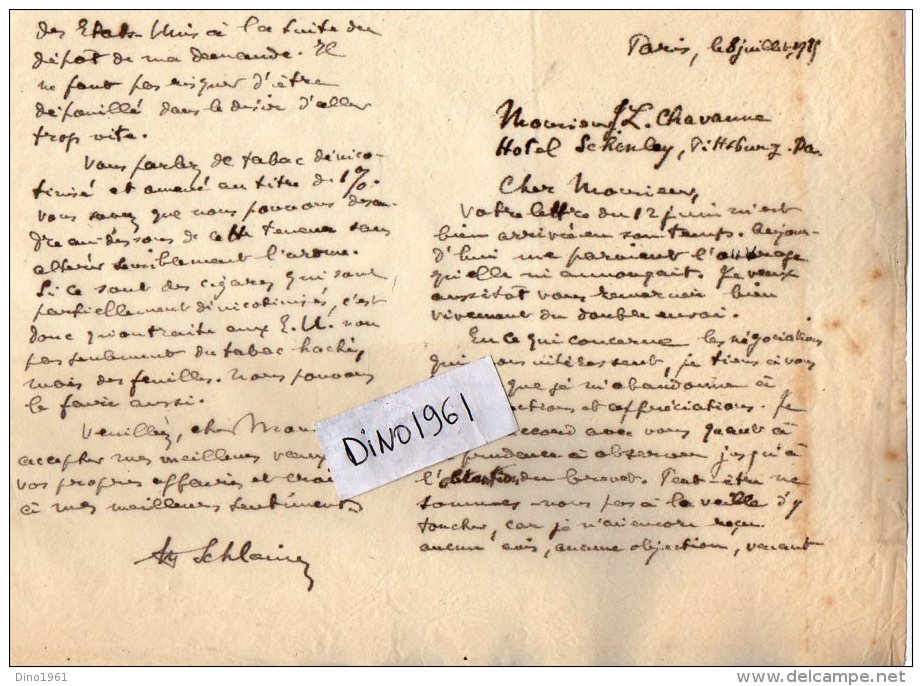 Paris, le 8 juillet 1925
Monsieur J. L. Chavanne
Hotel Schenley, Pittsburg. Pa.
Cher Monsieur,
Votre lettre du 12 juin m'est
bien arrivée en son temps. Aujour-
d'hui me parvient l'ouvrage
qu'elle m'annonçait. Je veux
aussitôt vous remercier bien
vivement du double envoi.
En ce qui concerne les négociations
qui vous intéressent, je tiens à vous
que je m'abandonne à
et appréciations. Je
accord avec vous quant à
prudence à observer jusqu'à
l'obtention du brevet. Peut-être ne
sommes-nous pas à la veille d'y
toucher, car je n'ai encore reçu
aucun avis, aucune objection, venant
des Etats-Unis à la suite du
dépôt de ma demande. Il
ne faut pas risquer d'être
dépouillé dans le désir d'aller
trop vite.
Vous parlez de tabac dénico-
tinisé et amené au titre de 1%.
Vous savez que nous pouvons descen-
dre au dessous de cette teneur sans
altérer sensiblement l'arôme.
Si ce sont des cigares qui sont
partiellement dénicotinisés, c'est
donc qu'on traite aux E.U. non
pas seulement du tabac haché,
mais des feuilles. Nous pouvons
le faire aussi.
Veuillez, cher
accepter mes meilleurs vœux
vos propres affaires et
à mes meilleurs sentiments
Schlaim
DINO1961
Dino1961
www.delcampe.net